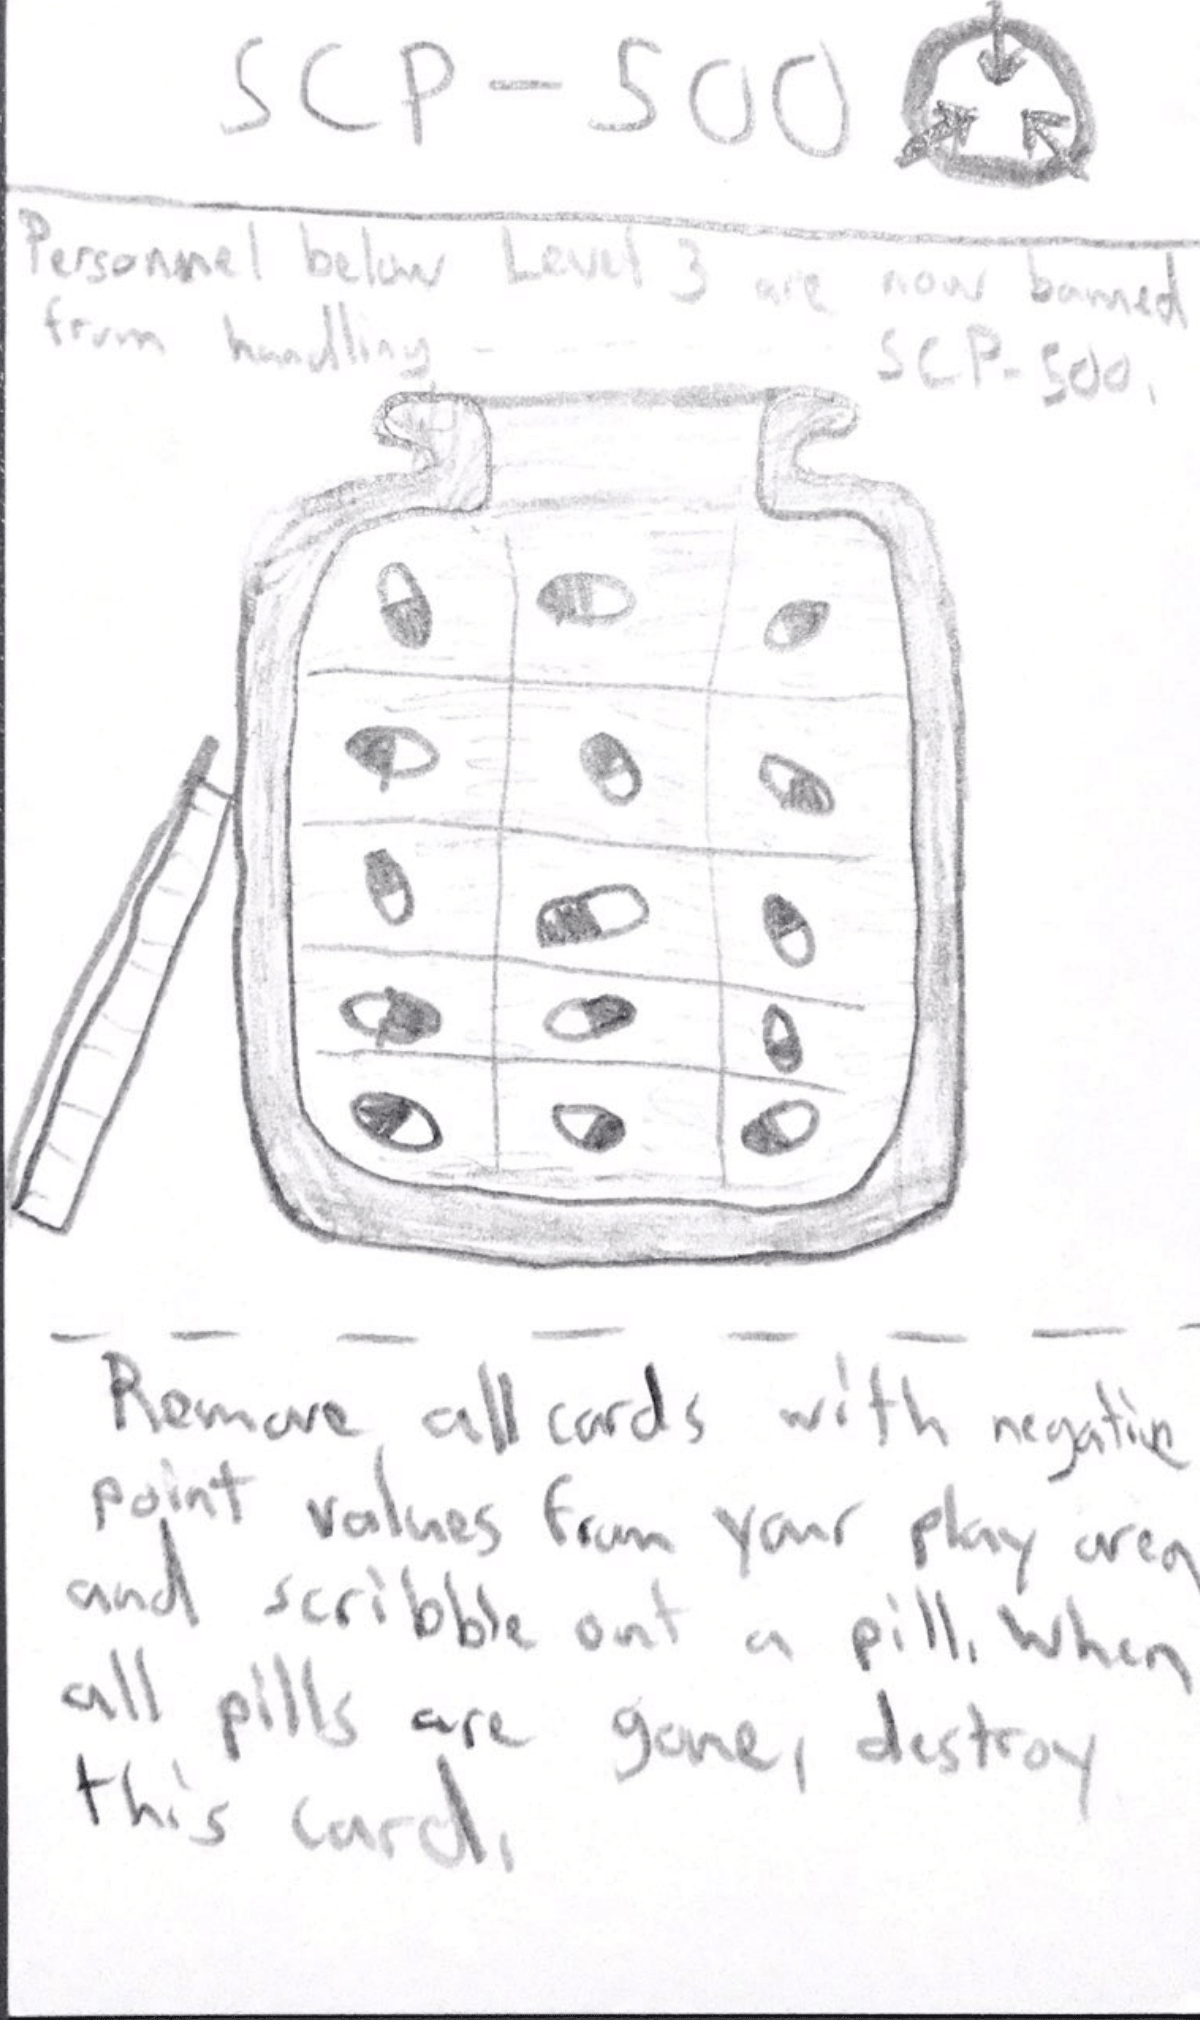 SCP-500
Personnel below Level 3 are now banned
from handling SCP-500.
Remove all cards with negative
point values from your play area
and scribble out a pill. When
all pills are gone, destroy
this card.